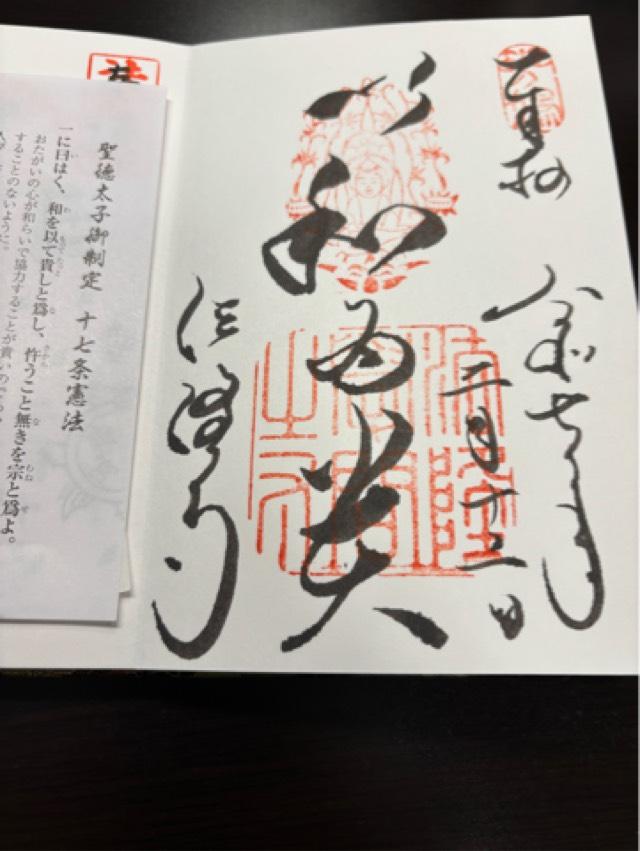 奉拝
令和七年
以和為貴
法隆寺
聖徳太子御制定 十七条憲法
一に曰はく、和を以て貴しと爲し、忤うこと無きを宗と爲よ。
おたがいの心が和らいで協力することが貴いので
することのないように。